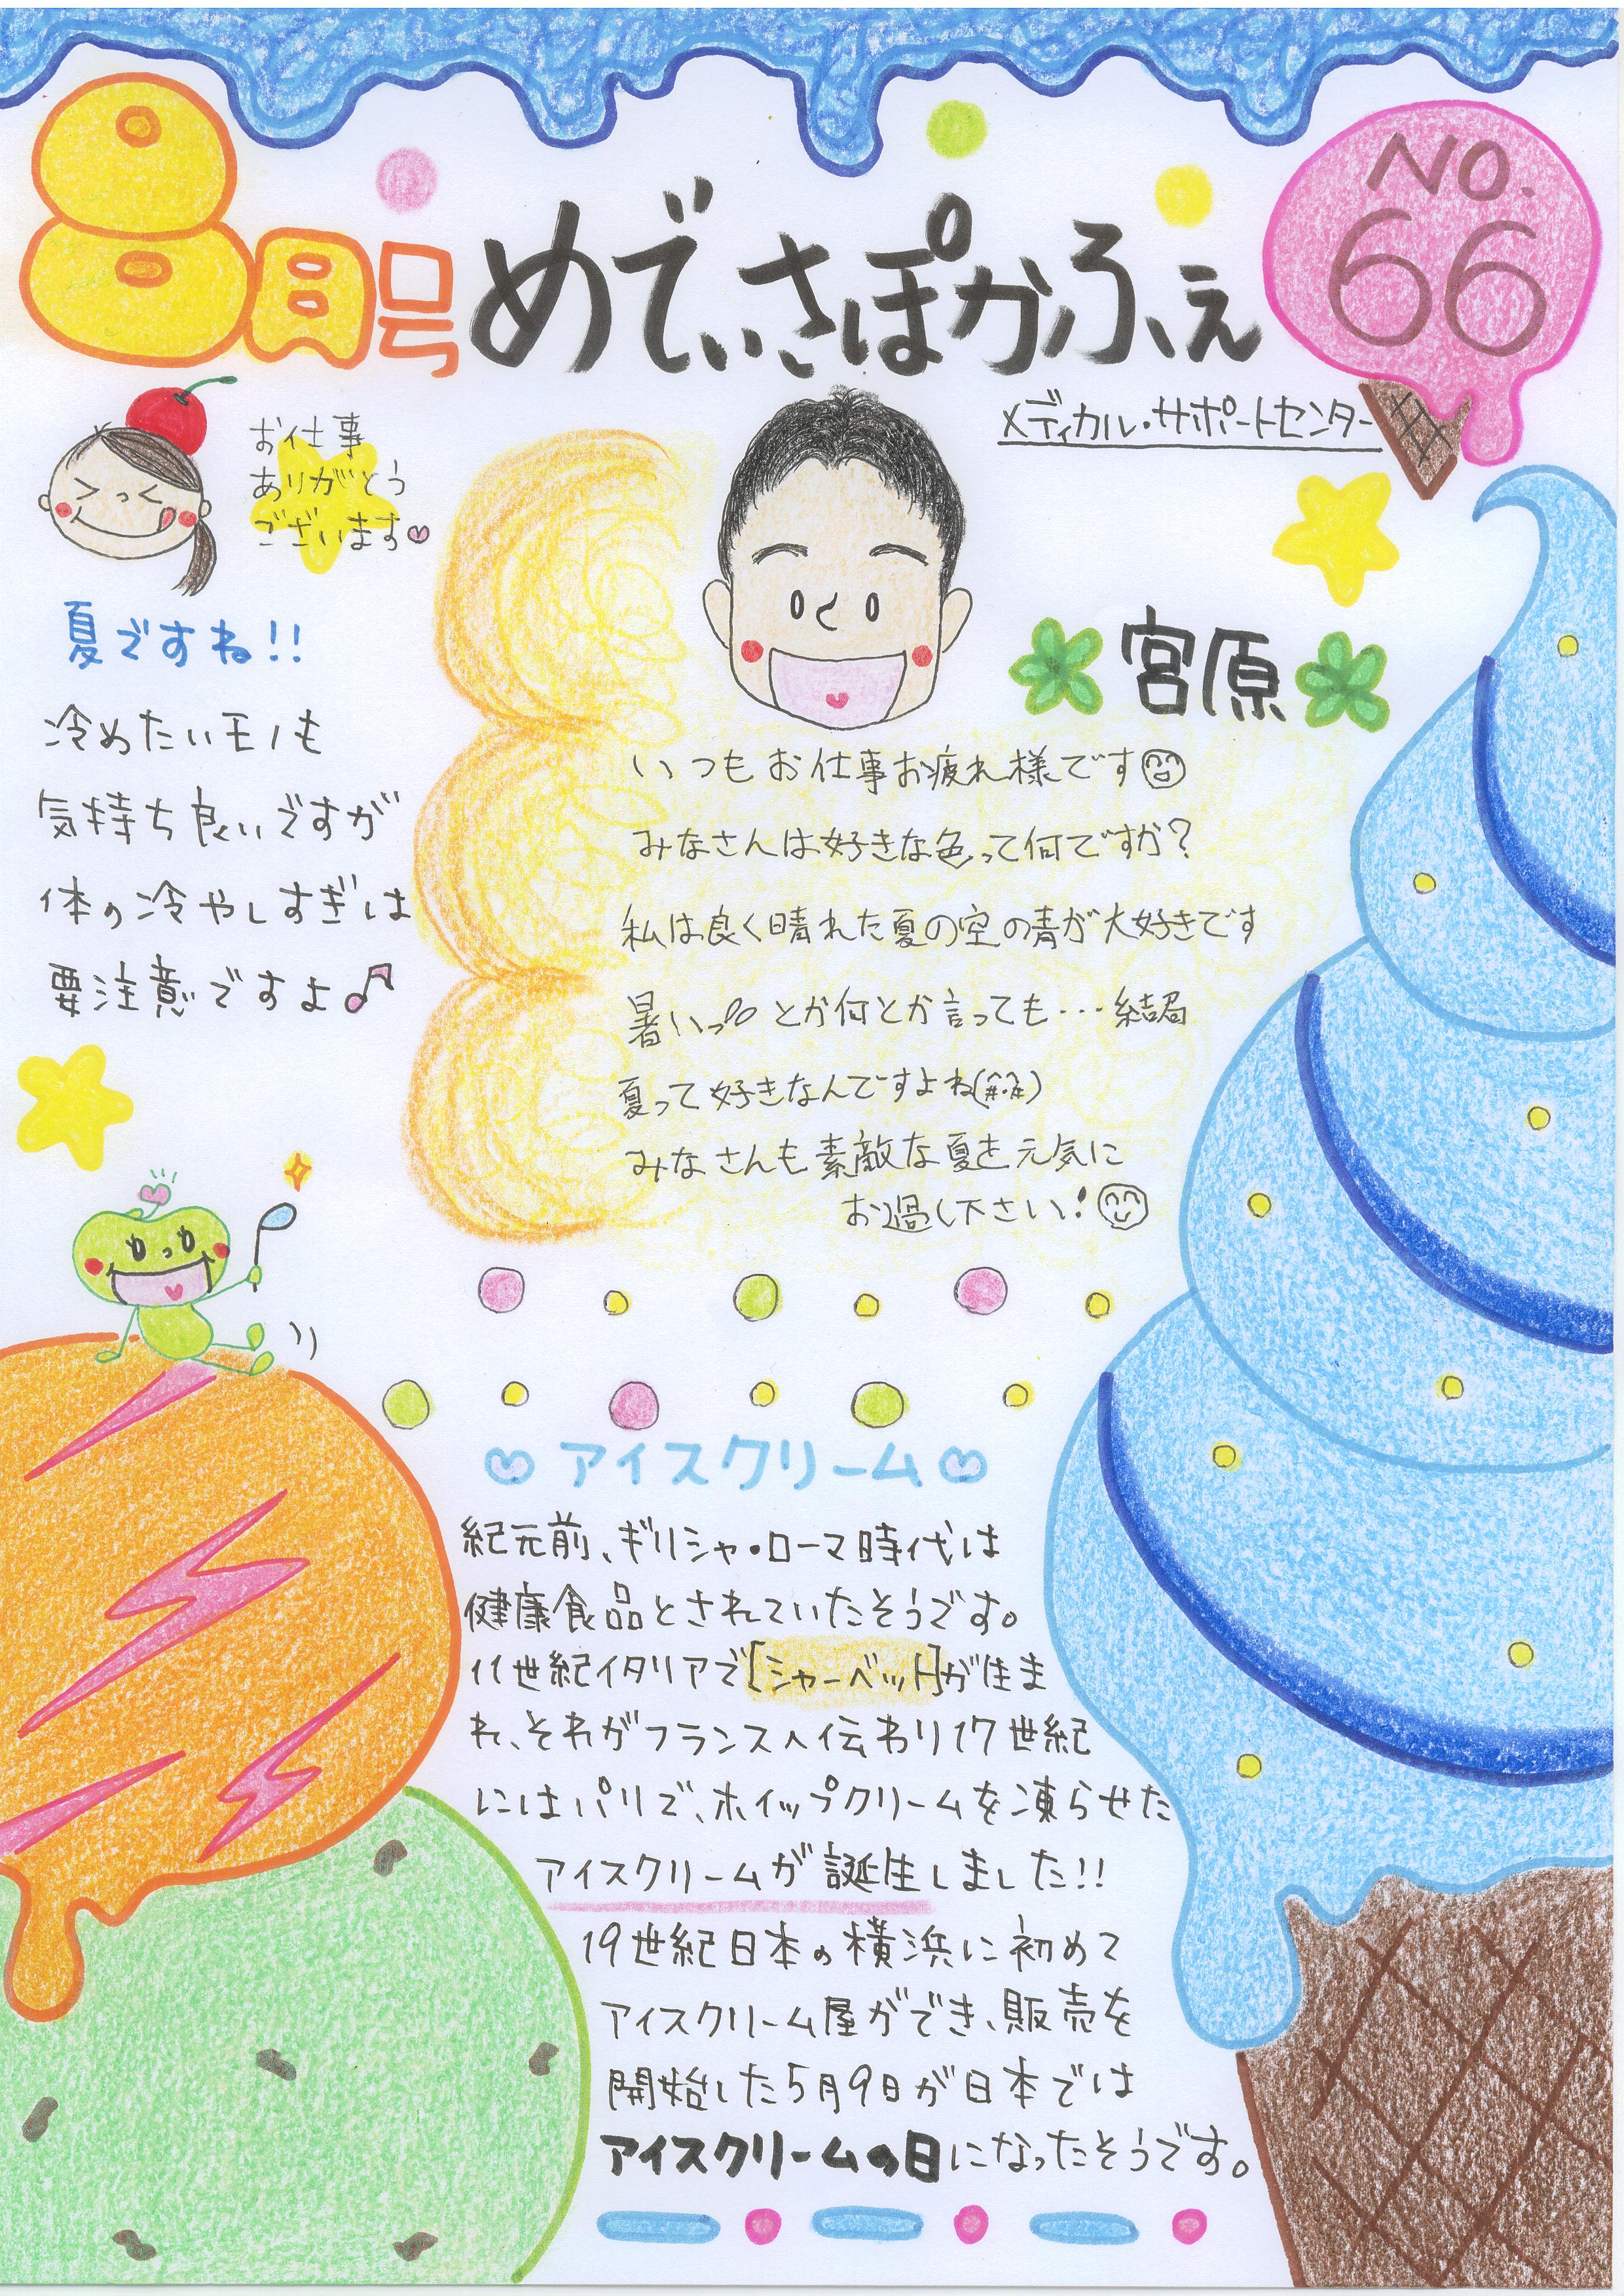 8月号
めでぃさぽかふぇ
NO.
66
メディカル・サポートセンター
お仕事
ありがとう
ございます
夏ですね!!
冷めたいモノも
気持ち良いですが
体の冷やしすぎは
要注意ですよ♪
宮原
いつもお仕事お疲れ様です
みなさんは好きな色って何ですか?
私は良く晴れた夏の空の青が大好きです
暑いっ とか何とか言っても…結局
夏って好きなんですよね
みなさんも素敵な夏を元気に
お過し下さい!
アイスクリーム
紀元前、ギリシャ・ローマ時代は
健康食品とされていたそうです。
11世紀イタリアで[シャーベット]が生ま
れ、それがフランスへ伝わり17世紀
にはパリで、ホイップクリームを凍らせた
アイスクリームが誕生しました!!
19世紀日本の横浜に初めて
アイスクリーム屋ができ、販売を
開始した5月9日が日本では
アイスクリームの日になったそうです。